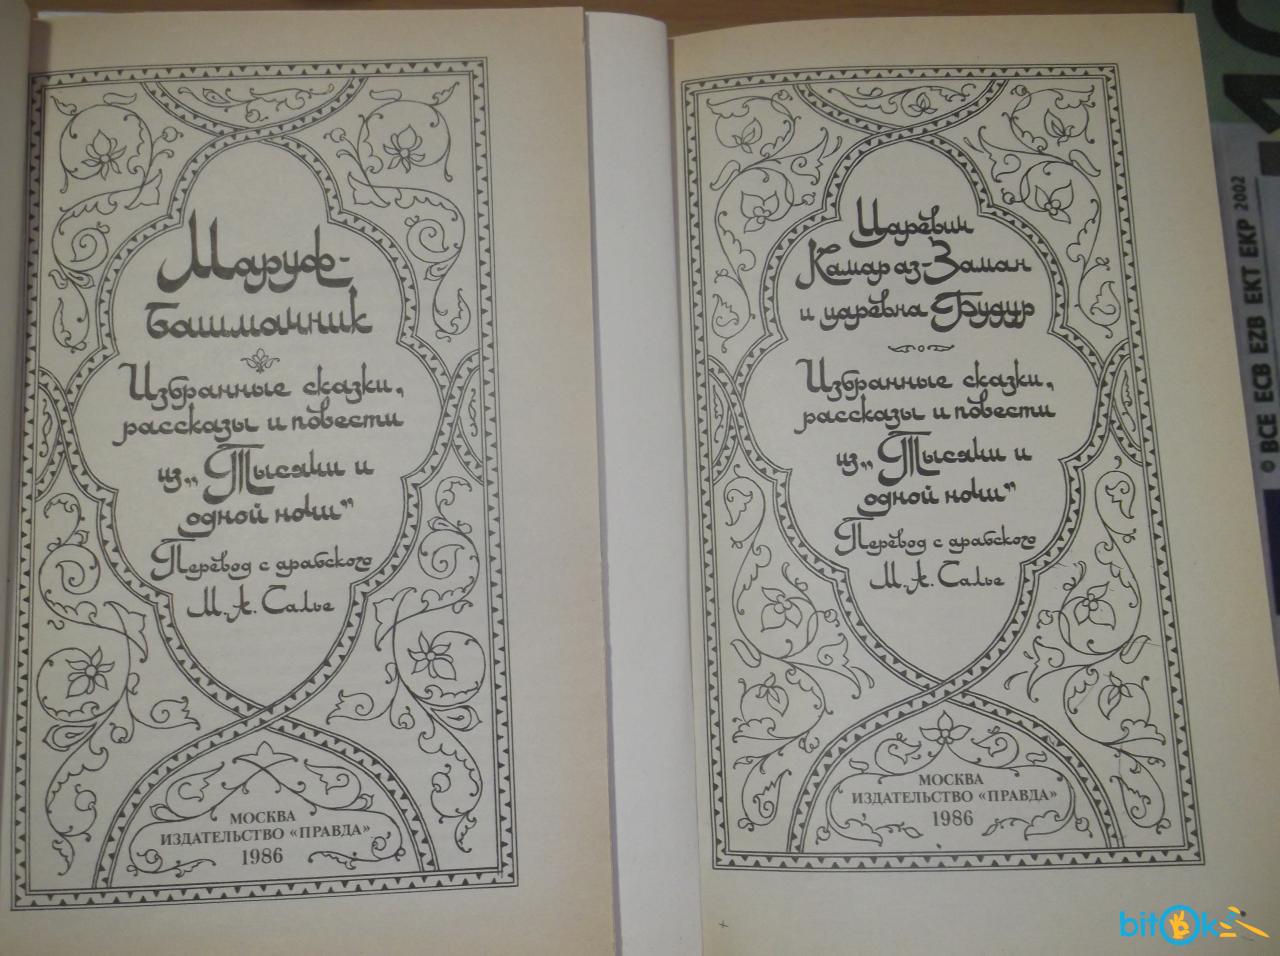 Маруф-
башмачник
Избранные сказки,
рассказы и повести
из „Тысячи и
одной ночи”
Перевод с арабского
М. А. Салье
МОСКВА
ИЗДАТЕЛЬСТВО «ПРАВДА»
1986
Царевич
Камар аз-Заман
и царевна Будур
Избранные сказки,
рассказы и повести
из „Тысячи и
одной ночи”
Перевод с арабского
М. А. Салье
МОСКВА
ИЗДАТЕЛЬСТВО «ПРАВДА»
1986
© BCE ECB EZB EKT EKP 2002
bitOk